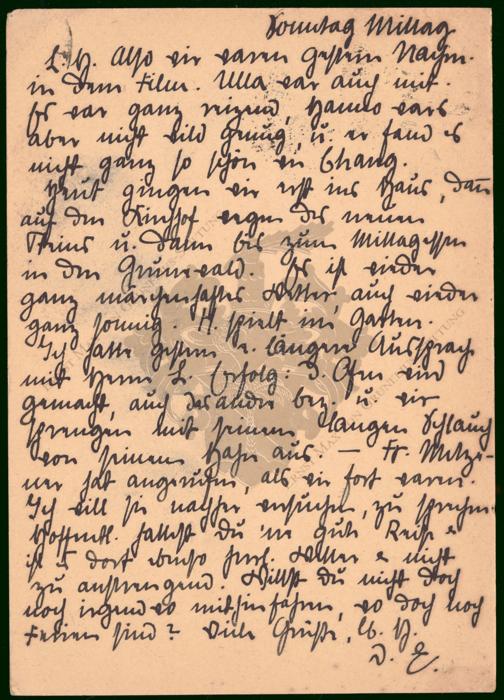 Sonntag Mittag
L. H. Also wir waren gestern Nachm.
in dem Film. Ulla war auch mit.
Es war ganz reizend, Hanno wars
aber nicht wild genug, u. er fand es
nicht ganz so schön wie Chang.
Heut gingen wir erst ins Haus, dann
auf den Kirchhof wegen des neuen
Steins u. dann bis zum Mittagessen
in den Grunewald. Es ist wieder
ganz märchenhaftes Wetter, auch wieder
ganz sonnig. H. spielt im Garten.
Ich hatte gestern e. längere Aussprach
mit Herrn L. Erfolg: d. Ofen wird
gemacht, auch das andre bez. u. wir
sprengen mit seinem langen Schlauch
von seinem Hahn aus. — Fr. Metze-
ner hat angerufen, als wir fort waren.
Ich will sie nachher versuchen, zu sprechen.
Hoffentl. hattest du 'ne gute Reise &
ist dort ebenso herrl. Wetter & nicht
zu anstrengend. Willst du nicht doch
noch irgendwo mit hinfahren, wo doch noch
Ferien sind? Viele Grüße, lb. H.
D. E.